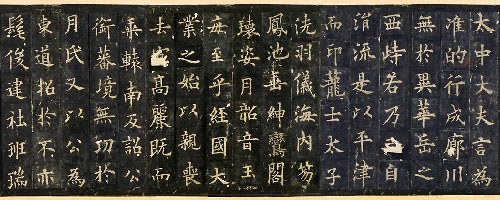 太中大夫言為
准的行成廊川
無於異華岳之
西峙若乃自
流是以平津
而印龍士太子
洗羽儀海內笏
鳳池垂紳鸞閣
瓌姿月韶音玉
每至乎經國大
業之始以親喪
去高麗既而
轅南及詔公
銜蕃境無功於
月氏又以公為
東道招於不亦
髦俊建社班瑞